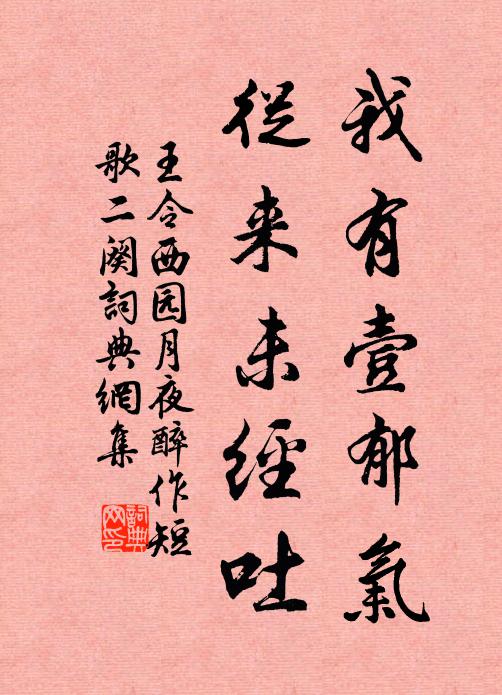 我有壹郁氣
從来未經吐
王令西园月夜醉作短
歌二阕詞典網集
詞典网印